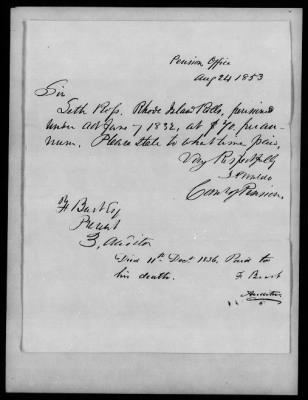 Pension Office
Aug 24 1853
Sir
Seth Ross, Rhode Island Rolls, pensioned
under act June 7 1832, at $ 70. per an-
num. Please state to what time paid,
Very Respectfully
Com of Pensions
F Burt Esq
Present
3, Auditor
Died 11th Decr 1836, Paid to
his death.
F. Burt
Auditor